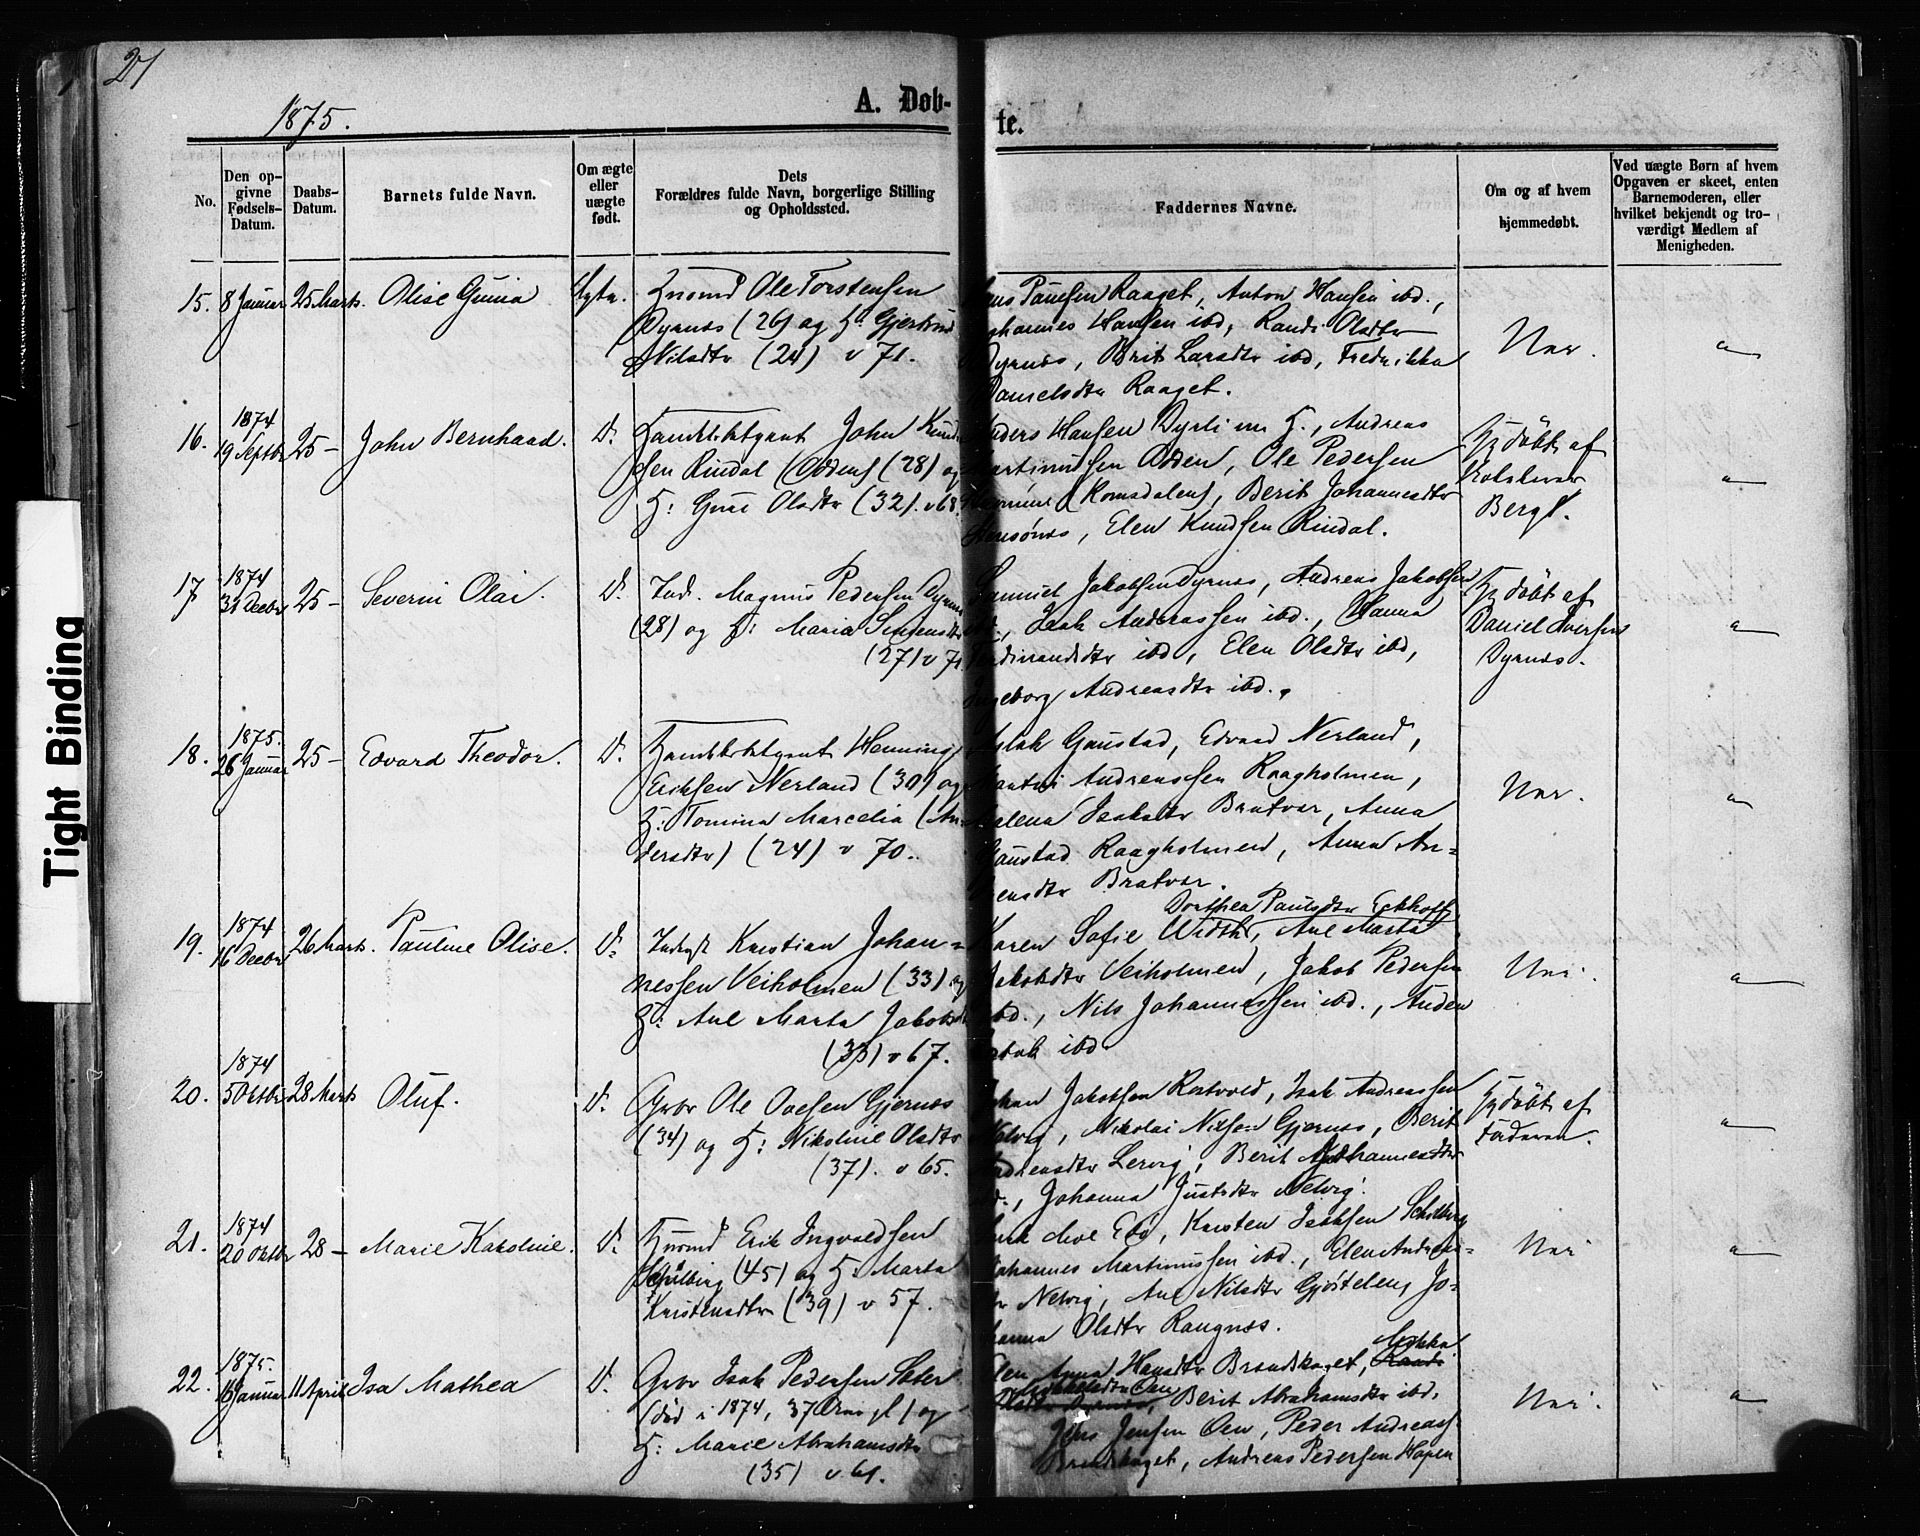 21
1875.
A. Døb-
te.
No.
Den op-
givne
Fødsels-
Datum.
Daabs-
Datum.
Barnets fulde Navn.
Om ægte
eller
uægte
født.
Dets
Forældres fulde Navn, borgerlige Stilling
og Opholdssted.
Faddernes Navne.
Om og af hvem
hjemmedøbt.
Ved uægte Børn af hvem
Opgaven er skeet, enten
Barnemoderen, eller
hvilket bekjendt og tro-
værdigt Medlem af
Menigheden.
15. 8 Januar 25 Marts. Olise Gunia Ole Torstensen
Dyrnes (26) og H. Gjertrud
Nilsdtr (24) v 71.
Paulsen Raaget, Anton Hansen ibd.,
Johannes Hansen ibd, Randi Olsdtr
Dyrnes, Berit Larsdtr ibd, Fredrikka
Danielsdtr Raaget.
Nei.
16. 1874
19 Septbr 25 – John Bernhard. D. John Knud-
sen Rindal (Odden) (28) og
H. Guri Olsdtr (32). v 68.
Anders Hansen Dyrli m H., Andreas
Martinussen Odden, Ole Pedersen
(Romsdalen), Berit Johannesdtr
Elen Knudsen Rindal.
Hj døbt af
Bergl.
17 1874
31 Decbr 25 – Severin Olai. D. Ind. Magnus Pedersen Dyrnes
(28) og H: Maria Simensdtr
(27) v 71
Samuel Jakobsen Dyrnes, Andreas Jakobsen
ibd., Isak Andreassen ibd., Hanna
Ferdinandsdtr ibd, Elen Olsdtr ibd,
Ingeborg Andreasdtr ibd.
Hj døbt af
Daniel Iversen
Dyrnes.
18. 1875.
26 Januar 25 – Edvard Theodor. D. Henning
Eriksen Nerland (30) og
H: Tomina Marcelia (An-
dersdtr) (24) v 70.
Aslak Gaustad, Edvard Nerland,
Martin Andreassen Raagholmen,
Malena Isaksdtr Bratvær, Anna
Gaustad Raagholmen, Anna An-
dreasdtr Bratvær.
Nei.
19. 1874
16 Decbr 26 Marts. Pauline Olise. D. Inderst Kristian Johan-
nessen Veiholmen (33) og
H: Ane Marta Jakobsdtr
(33) v 67.
Dorthea Paulsdtr Eckhoff
Karen Sofie Width, Ane Marta
Jakobsdtr Veiholmen, Jakob Pedersen
ibd., Nils Johannessen ibd., Anden
ibd.
Nei.
20. 1874
5 Oktbr 28 Marts Oluf. D. Grbr Ole Ovesen Gjernes
(34) og H: Nikoline Olsdtr
(37). v 65.
Johan Jakobsen Rostvold, Isak Andreassen
Nelvig, Nikolai Nilsen Gjernes, Berit
Andreasdtr Lervig, Berit Johannesdtr
ibd., Johanna Justsdtr Nelvig.
Hj døbt af
Faderen.
21. 1874
20 Oktbr 28 – Marie Karoline. D. Erik Ingvaldsen
Skjølberg (45) og H. Marta
Kristensdtr (39) v 57.
Moe Edø, Kristen Isaksen Skjølberg
Johannes Martinussen ibd., Elen Andreas-
dtr Nelvig, Ane Nilsdtr Gjøstelen, Jo-
hanna Olsdtr Raugnes.
Nei
22. 1875.
16 Januar 11 April Isa Mathea D. Grbr Isak Pedersen Sæter
(død i 1874, 37 Aar gl) og
H: Marie Abrahamsdtr
(35) v 61.
Elen Anna Hansdtr Brandskaget,
Oen, Berit Abrahamsdtr ibd.
Jens Jensen Oen, Peder Andreass.
Brandskaget, Andreas Pedersen Hopen
Nei.
Tight Binding